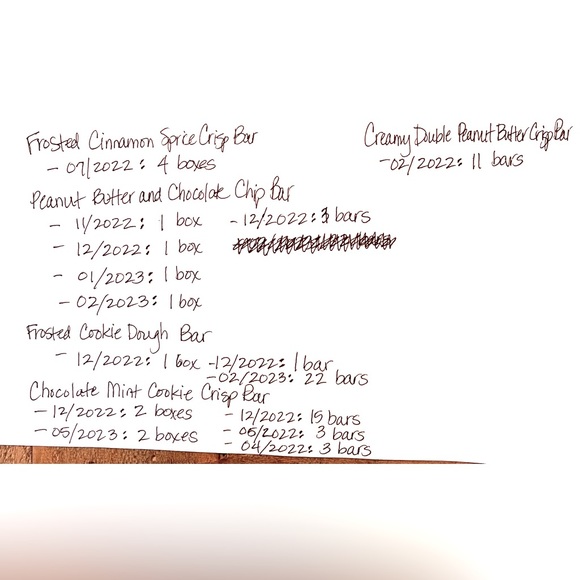 Frosted Cinnamon Sprice Crisp Bar
- 07/2022: 4 boxes
Creamy Duble Peanut Butter Crisp Bar
- 02/2022: 11 bars
Peanut Butter and Chocolate Chip Bar
- 11/2022: 1 box - 12/2022: 3 bars
- 12/2022: 1 box
- 01/2023: 1 box
- 02/2023: 1 box
Frosted Cookie Dough Bar
- 12/2022: 1 box - 12/2022: 1 bar
- 02/2023: 22 bars
Chocolate Mint Cookie Crisp Bar
- 12/2022: 2 boxes - 12/2022: 15 bars
- 05/2023: 2 boxes - 06/2022: 3 bars
- 04/2022: 3 bars